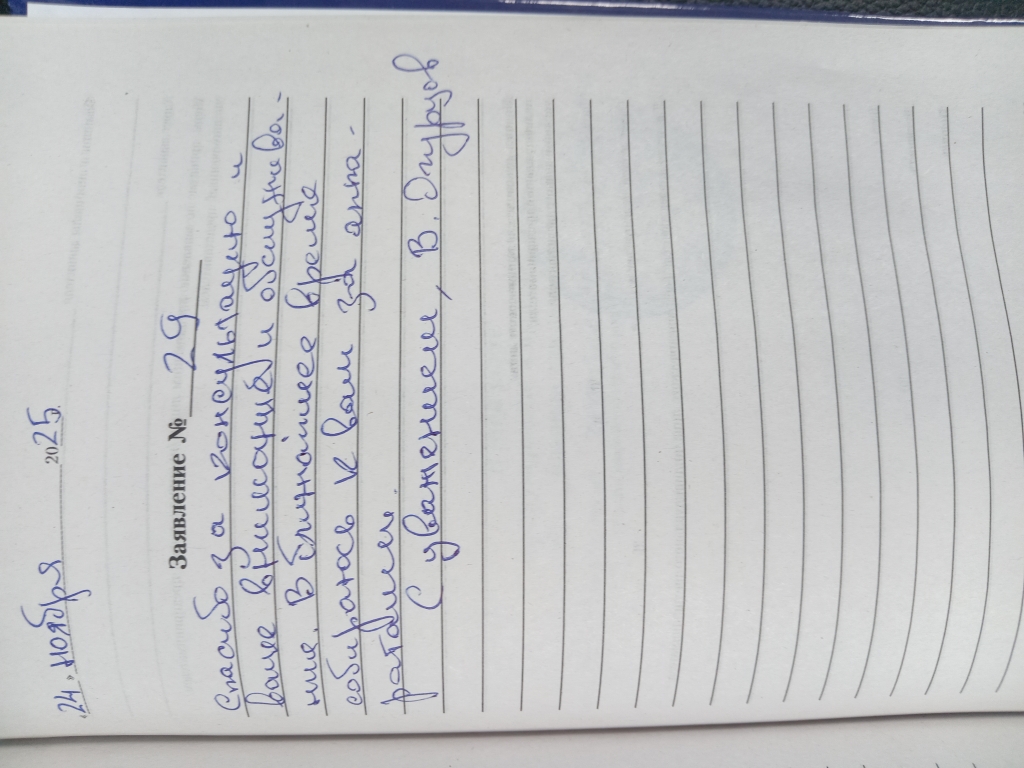 «24» ноября 2025
Заявление № 29
Спасибо за консультацию и
ваше внимание и обслужива-
ние. В ближайшее время
собираюсь к вам за аппа-
ратами.
С уважением, В. Огурцов